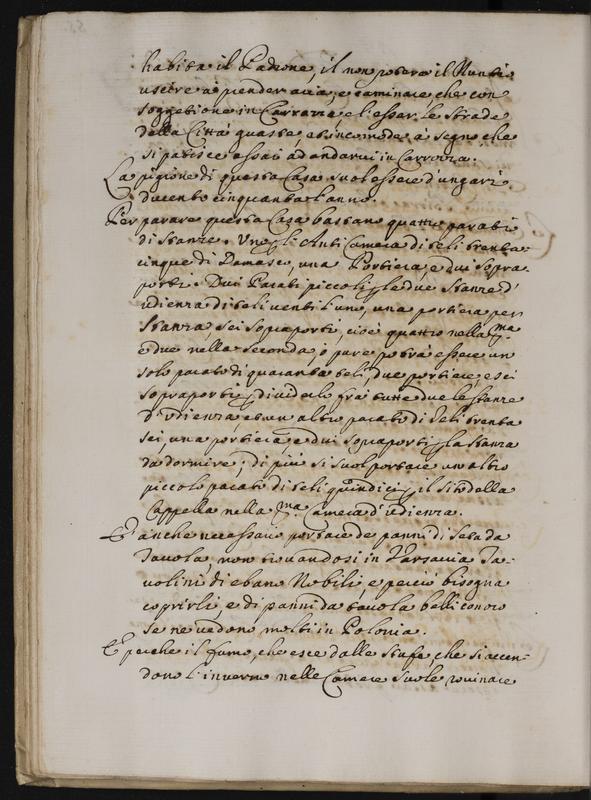 habita il Padrone, il non poter il Nuntio
uscire à prender aria, e caminare, che con
soggettione in Carrozza, e l'essar le strade
della Città guaste, et incomode à segno che
si patisce assai ad andarui in Carrozza.
La pigione di questa Casa suol essere d'ungari
ducento cinquanta l'anno.
Per parare questa Casa bastano quattro parati
di stanze. Uno p l'Anticamera di teli trenta-
cinque di Damasco, una Portiera, e dui sopra-
porti. Dui Parati piccoli p le due stanze d'
udienza di teli venti l'uno, una portiera per
stanza, sei sopraporti, cioè quattro nella pma
e due nella seconda, ò pure potrà essere un
solo parato di quaranta teli, due portiere, e sei
sopraporti p diuiderlo frà tutte due le stanze
d'udienza, et un altro parato di teli trenta
sei, una portiera e dui sopraporti p la stanza
da dormire; di più si suol portare un altro
piccolo parato di teli quindici p il sito della
Cappella nella pma Camera d'udienza.
E anche necessario portare de panni di seta da
Tauola, non trouandosi in Varsauia Ta-
uolini di ebano Nobili, e perciò bisogna
coprirli, e di panni da tauola belli con oro
se ne uedono molti in Polonia.
E perche il fumo, che esce dalle stufe, che si accen-
dono l'inuerno nelle Camere suole rouinare